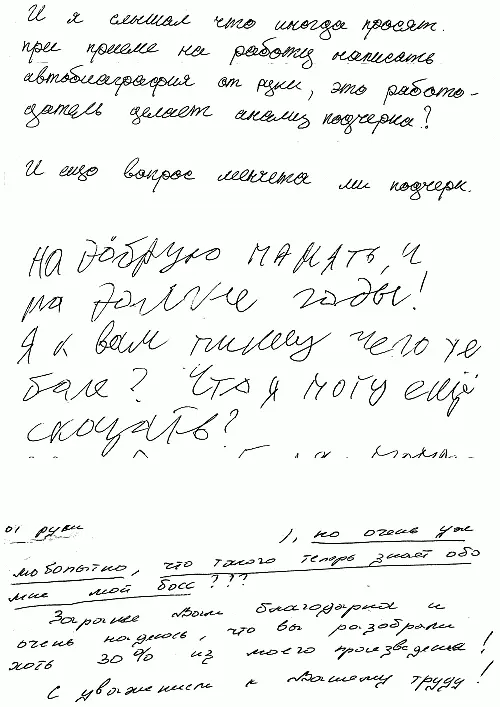 И я слышал что иногда просят.
при приеме на работу написать
автобиаграфия от руки, это работо-
датель делает анализ подчерка?
И ещо вопрос менчета ли подчерк.
на добрую память, и
на долгие годы!
Я к вам пишу чего же
боле? Что я могу ещё
сказать?
от руки ), но очень уж
любопытно, что такого теперь знает обо
мне мой босс???
Заранее Вам благодарна и
очень надеюсь, что вы разобрали
хоть 30% из моего произведения!
С уважением к Вашему труду!